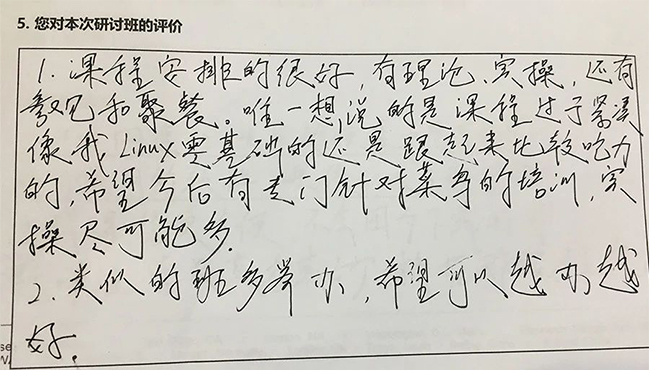 5. 您对本次研讨班的评价
1. 课程安排的很好,有理论、实操,还有
和聚餐。唯一想说的是课程过于紧凑
像我Linux零基础的还是跟起来比较吃力
的,希望今后有专门针对菜鸟的培训,实
操尽可能多.
2. 类似的班多举办,希望可以越办越
好.
se